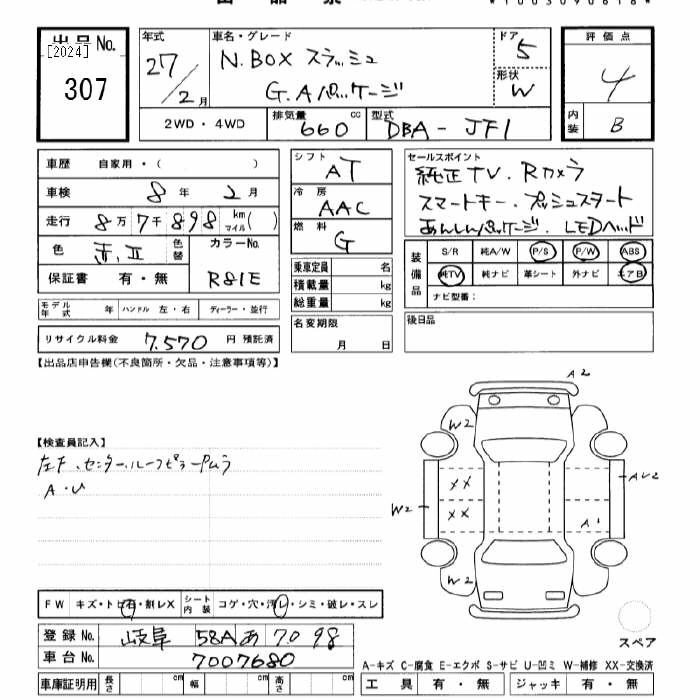 出品票
*1003090618*
出品No.
[2024]
307
年式 27/2月
車名・グレード N.BOX スラッシュ
G.Aパッケージ
ドア 5
形状 W
評価点 4
内装 B
2WD・4WD
排気量 660 cc
型式 DBA-JF1
車歴 自家用・( )
車検 8年 2月
走行 8万7千898 km マイル( )
色 赤II 色替
カラーNo. R81E
保証書 有・無
シフト AT
冷房 AAC
燃料 G
乗車定員 名
積載量 kg
総重量 kg
名変期限
月 日
セールスポイント
純正TV. Rカメラ
スマートキー. プッシュスタート
あんしんパッケージ. LEDヘッド
装備品
S/R 純A/W P/S P/W ABS
純TV 純ナビ 革シート 外ナビ エアB
ナビ型番:
後日品
モデル年式 年 ハンドル 左・右 ディーラー・並行
リサイクル料金 7,570 円 預託済
【出品店申告欄(不良箇所・欠品・注意事項等)】
【検査員記入】
A・U
A2
W2
XX
XX
W2
AU2
A1
W2
FW キズ・トビ石・割レX シート内装 コゲ・穴・汚レ・シミ・破レ・スレ
登録No. 岐阜 58A あ 7098
車台No. 7007680
車庫証明用 長さ cm 幅 cm 高さ cm
スペア
A-キズ C-腐食 E-エクボ S-サビ U-凹ミ W-補修 XX-交換済
工具 有・無 ジャッキ 有・無